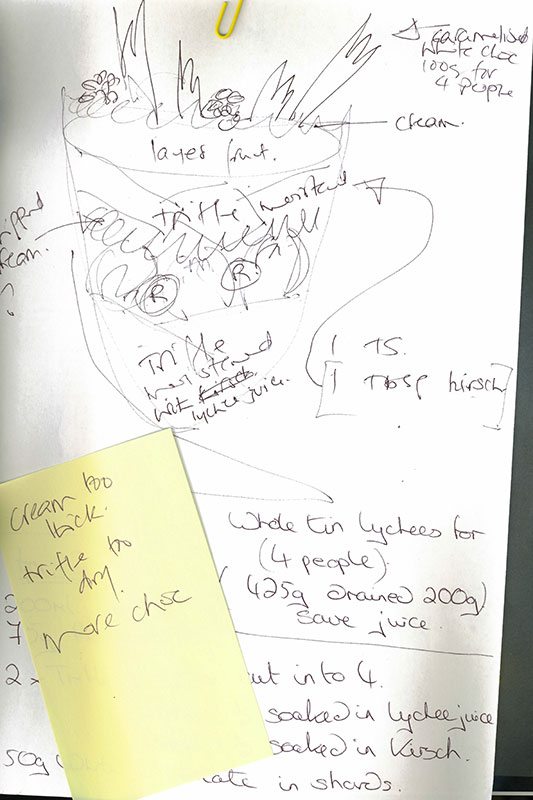 caramelised
white choc
100g for
4 people
cream.
layer fruit.
Trifle moistened
cream.
?
R
R
Trifle
moistened
with kirsch
lychee juice.
1 TS.
1 Tbsp kirsch
cream too
thick.
trifle too
dry.
more choc
Whole tin lychees for
(4 people).
(425g drained 200g)
save juice.
2
7
2 x
cut into 4.
soaked in lychee juice
soaked in Kirsch.
50g
in shards.